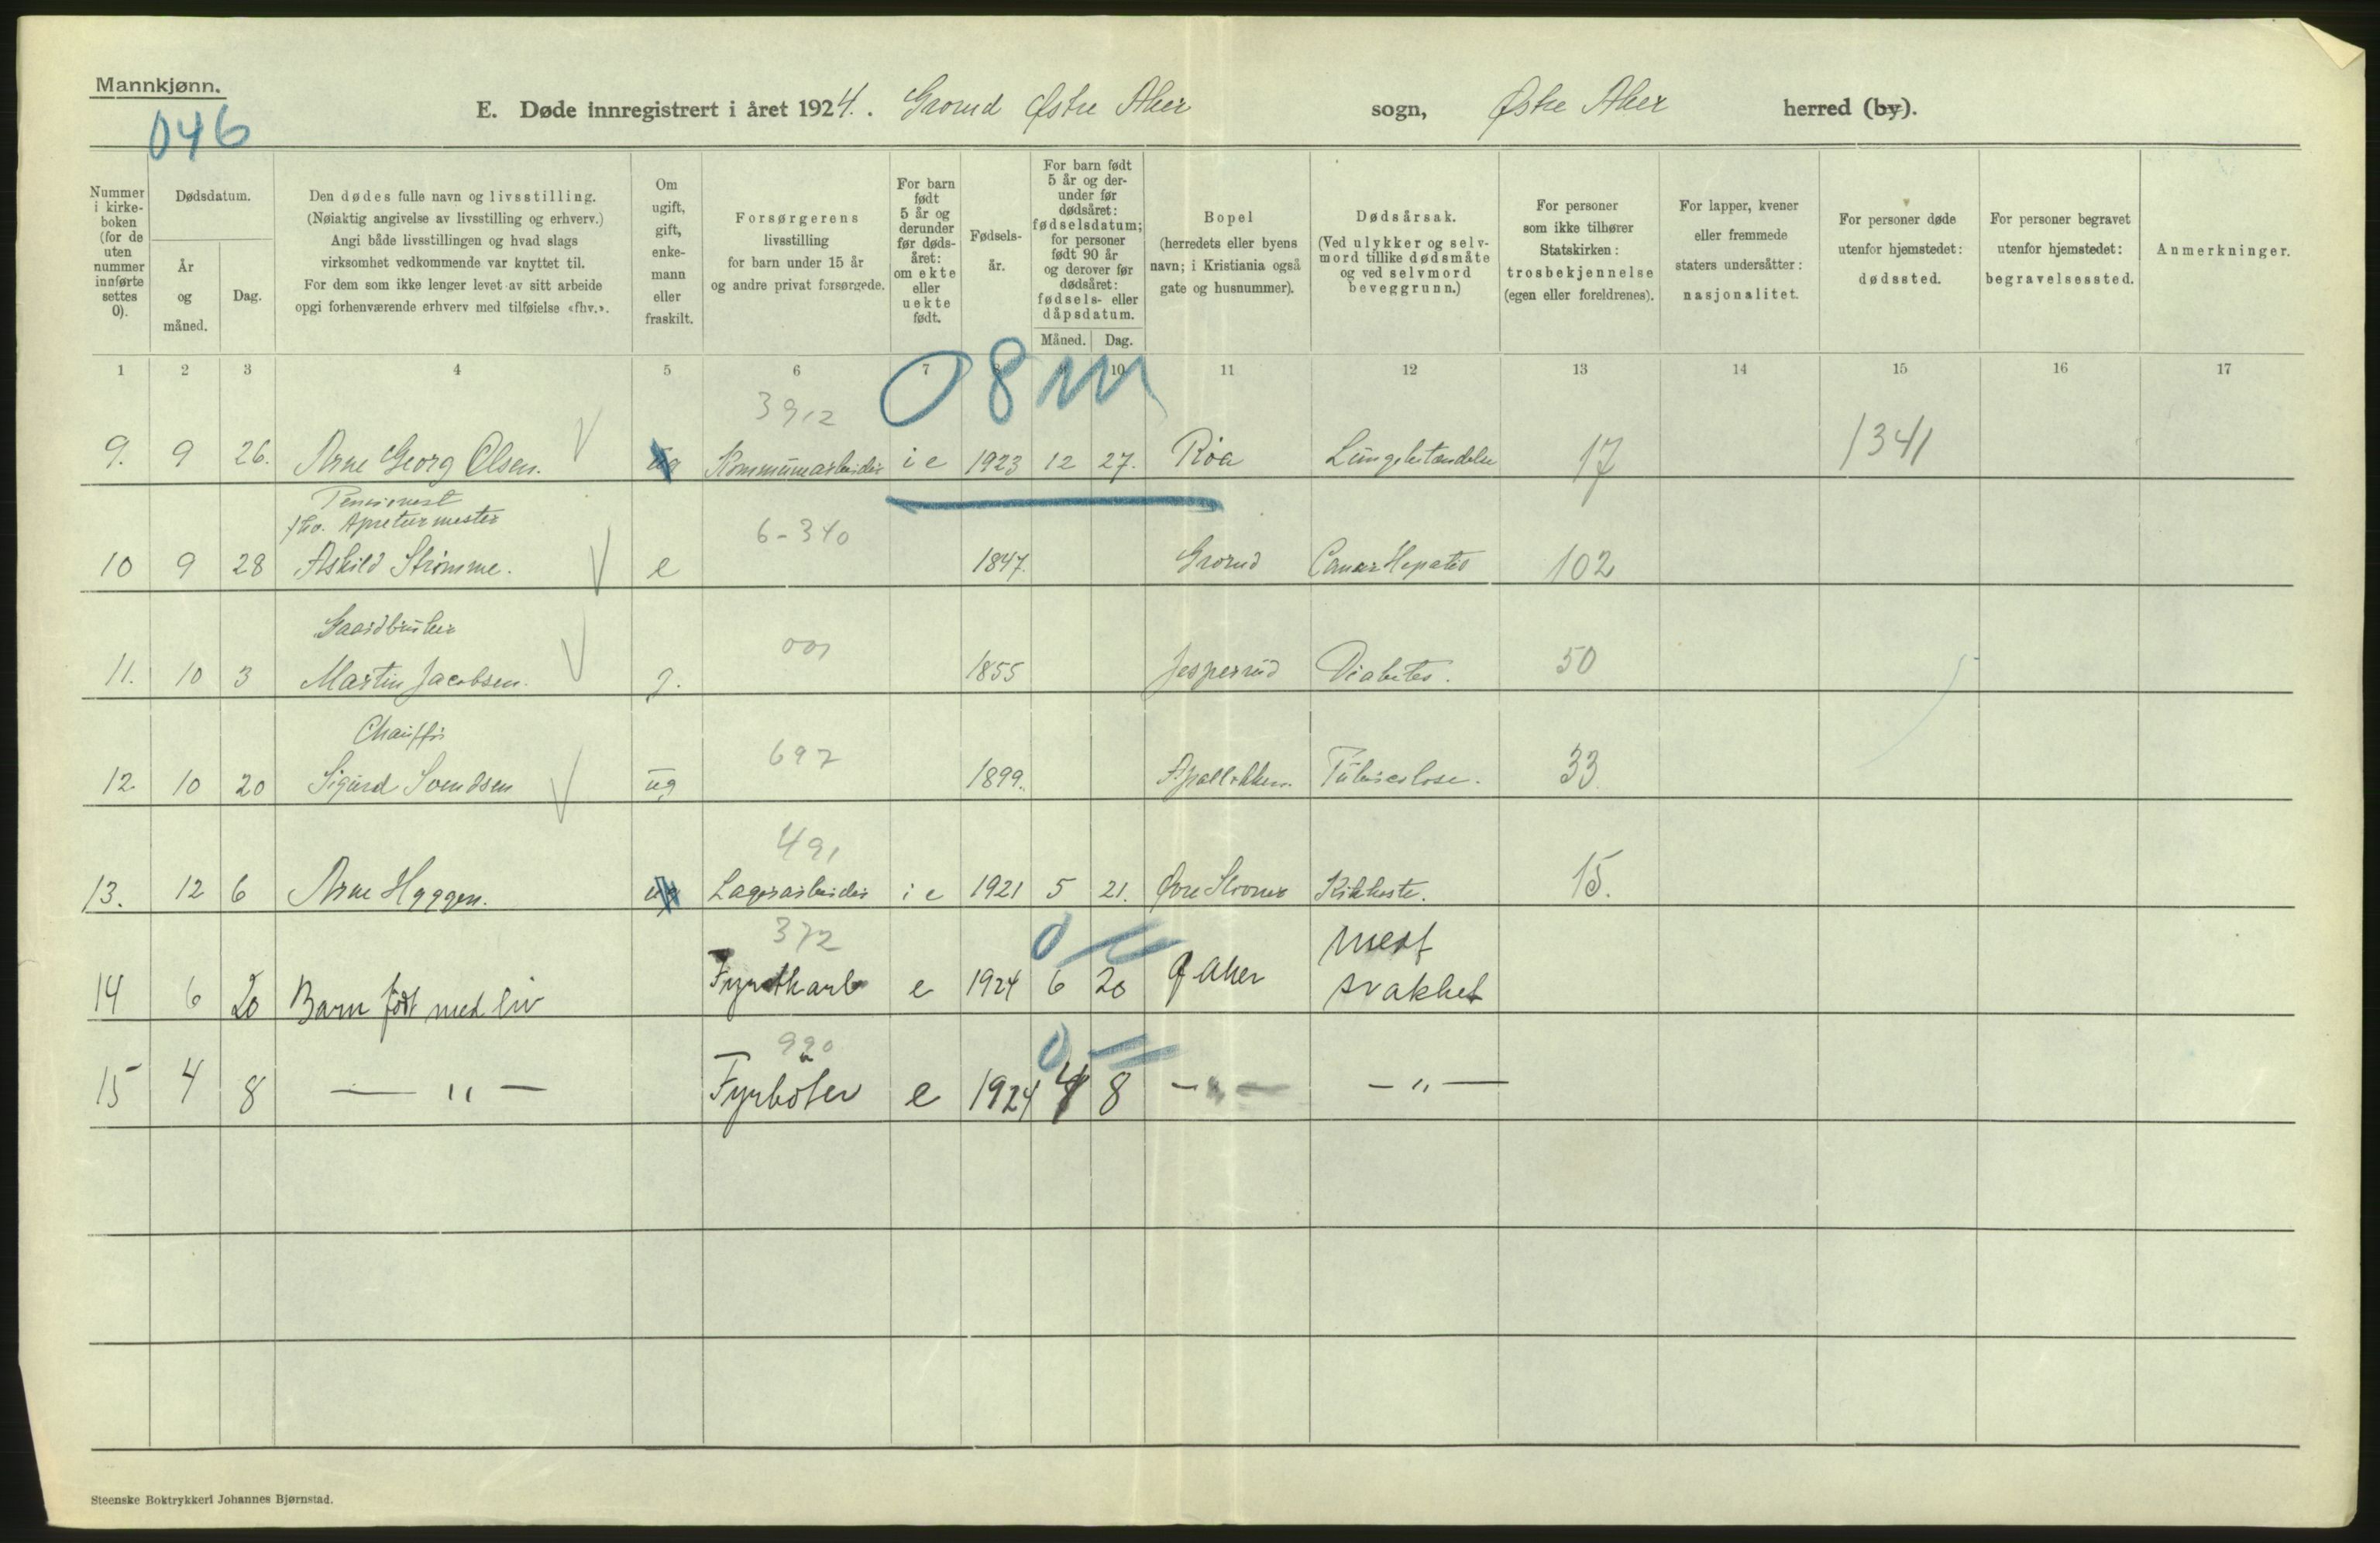 Mannkjønn.
046
E. Døde innregistrert i året 1924. Grorud Østre Aker sogn, Østre Aker herred (by).
Nummer i kirke- boken (for de uten nummer innførte settes 0).
Dødsdatum.
År og måned.
Dag.
Den dødes fulle navn og livsstilling.
(Nøiaktig angivelse av livsstilling og erhverv.)
Angi både livsstillingen og hvad slags
virksomhet vedkommende var knyttet til.
For dem som ikke lenger levet av sitt arbeide
opgi forhenværende erhverv med tilføielse «fhv.».
Om ugift, gift, enke- mann eller fraskilt.
Forsørgerens
livsstilling
for barn under 15 år
og andre privat forsørgede.
For barn født 5 år og derunder før døds- året: om ekte eller uekte født.
Fødsels- år.
For barn født 5 år og der- under før dødsåret: fødselsdatum; for personer født 90 år og derover før dødsåret: fødsels- eller dåpsdatum.
Måned. Dag.
Bopel
(herredets eller byens
navn; i Kristiania også
gate og husnummer).
Dødsårsak.
(Ved ulykker og selv-
mord tillike dødsmåte
og ved selvmord
beveggrunn.)
For personer
som ikke tilhører
Statskirken:
trosbekjennelse
(egen eller foreldrenes).
For lapper, kvener
eller fremmede
staters undersåtter:
nasjonalitet.
For personer døde
utenfor hjemstedet:
dødssted.
For personer begravet
utenfor hjemstedet:
begravelsessted.
Anmerkninger.
1 2 3 4 5 6 7 8 10 11 12 13 14 15 16 17
08 m
3912
9. 9 26. Arne Georg Olsen. ug Kommunearbeider i e 1923 12 27. Røa Lungebetændelse 17 1341
Pensionist
fhv. Apreturmester
6-340
10 9 28 Askild Strømme. e 1847. Grorud Cancer Hepatis 102
Gaardbruker
001
11. 10 3 Martin Jacobsen. g. 1855 Jesperud Diabetes. 50
Chauffør
697
12 10 20 Sigurd Svendsen ug 1899. Apalløkken Tuberculose. 33
491
13. 12 6 Arne Hyggen. ug Lagerarbeider i e 1921 5 21. Øvre Stovner Kikhoste. 15.
372
14 6 20 Barn født med liv Fyrstkarl e 1924 6 20 Ø Aker medf svakhet
990
15 4 8 — " — Fyrbøter e 1924 4 8 — " — — " —
Steenske Boktrykkeri Johannes Bjørnstad.